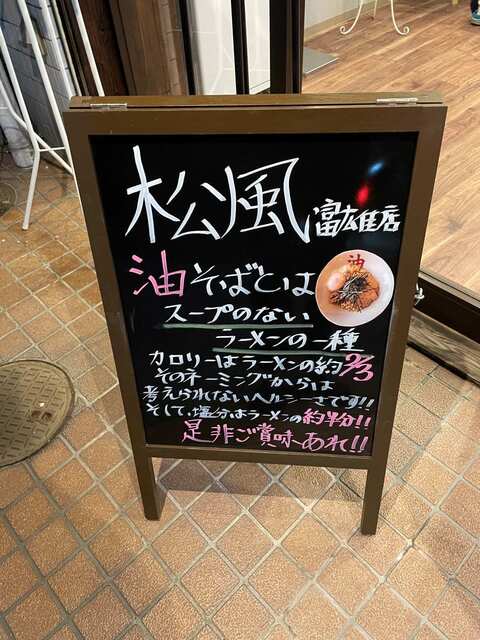 松風 富雄店
油そばとは
スープのない
ラーメンの一種
カロリーはラーメンの約2/3
そのネーミングからは
考えられないヘルシーさです!!
そして、塩分はラーメンの約半分!!
是非ご賞味あれ!!
油